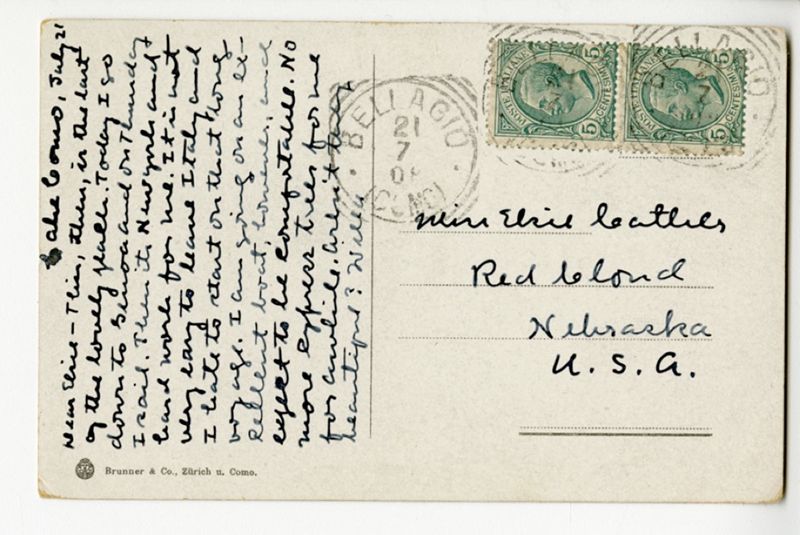 Lake Como, July 21
Dear Elsie - This, then, is the last
of the lovely places. Today I go
down to Genoa and on Thursday
I sail. Then its New York and
hard work for me. It is not
very easy to leave Italy and
I hate to start on that long
voyage. I am going on an ex-
cellent boat, however, and
expect to be comfortable. No
more cypress trees for me
for awhile. Aren't they
beautiful? Willa
BELLAGIO
21
7
08
(COMO)
POSTE ITALIANE
CENTESIMI
5
5
POSTE ITALIANE
CENTESIMI
5
5
BELLAGIO
Miss Elsie Cather
Red Cloud
Nebraska
U. S. A.
Brunner & Co., Zürich u. Como.